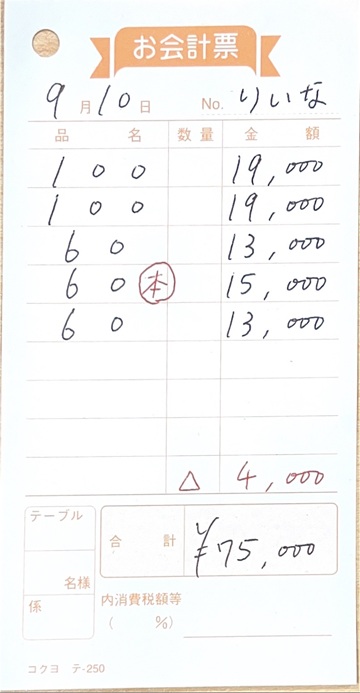 お会計票
9月10日 No. りいな
品名 数量 金額
100 19,000
100 19,000
60 13,000
60 本 15,000
60 13,000
△ 4,000
テーブル
名様
係
合計 ¥75,000
内消費税額等
( %)
コクヨ テ-250